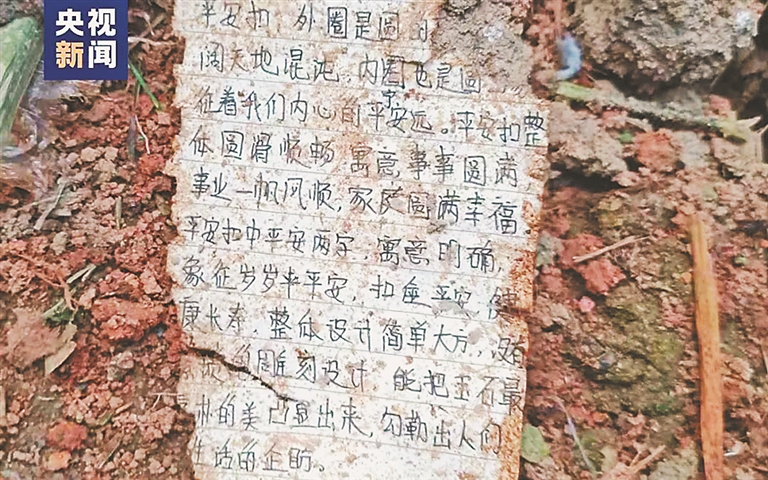 央视
新闻
平安扣，外圈是圆
阔天地混沌。内圈也是圆
征着我们内心的平安远。平安扣整
体圆滑顺畅，寓意事事圆满
事业一帆风顺，家庭圆满幸福。
平安扣中平安两字，寓意明确，
象征岁岁平平安，扣住平安，健
康长寿，整体设计简单大方，没有
的雕刻设计，能把玉石最
的美凸显出来，勾勒出人们
生活的企盼。